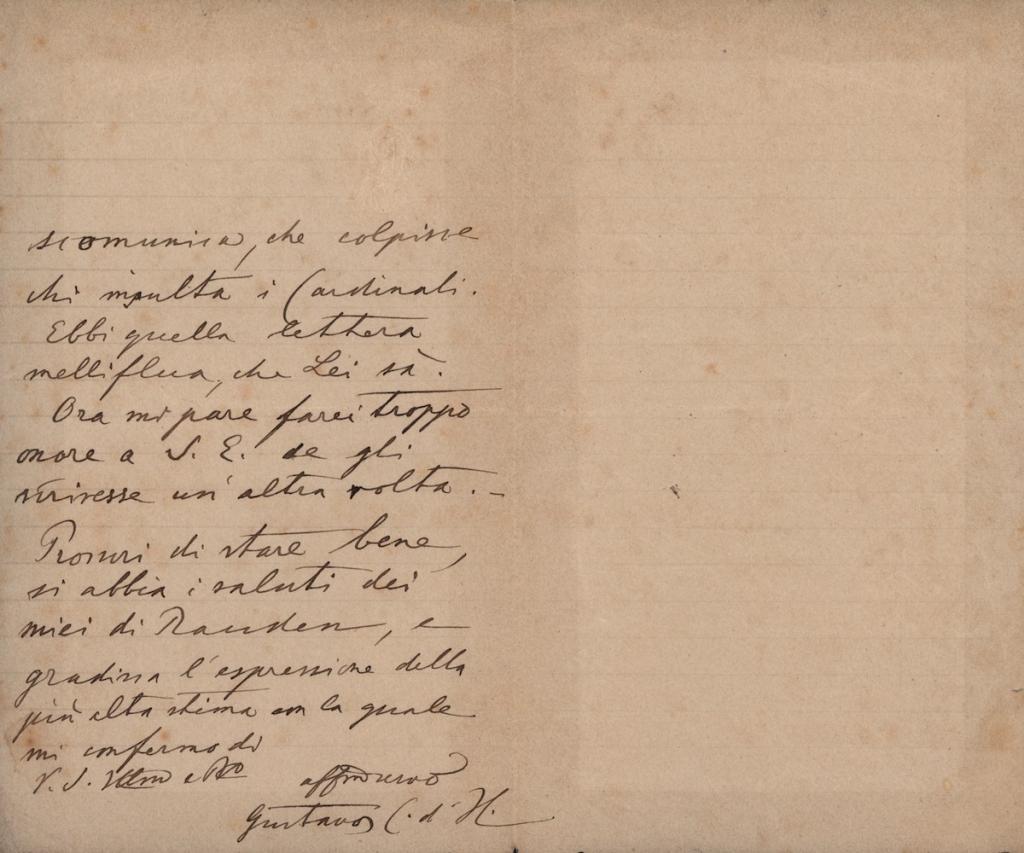 scomunica, che colpisse
chi insulta i Cardinali.
Ebbi quella lettera
melliflua, che Lei sà.
Ora mi pare farei troppo
onore a S. E. se gli
scrivesse un' altra volta. –
Procuri di stare bene,
si abbia i saluti dei
miei di Rauden, e
gradisca l'espressione della
più alta stima con la quale
mi confermo di
V. S. Illma e Rma
affmo servo
Gustavo C. d' H.